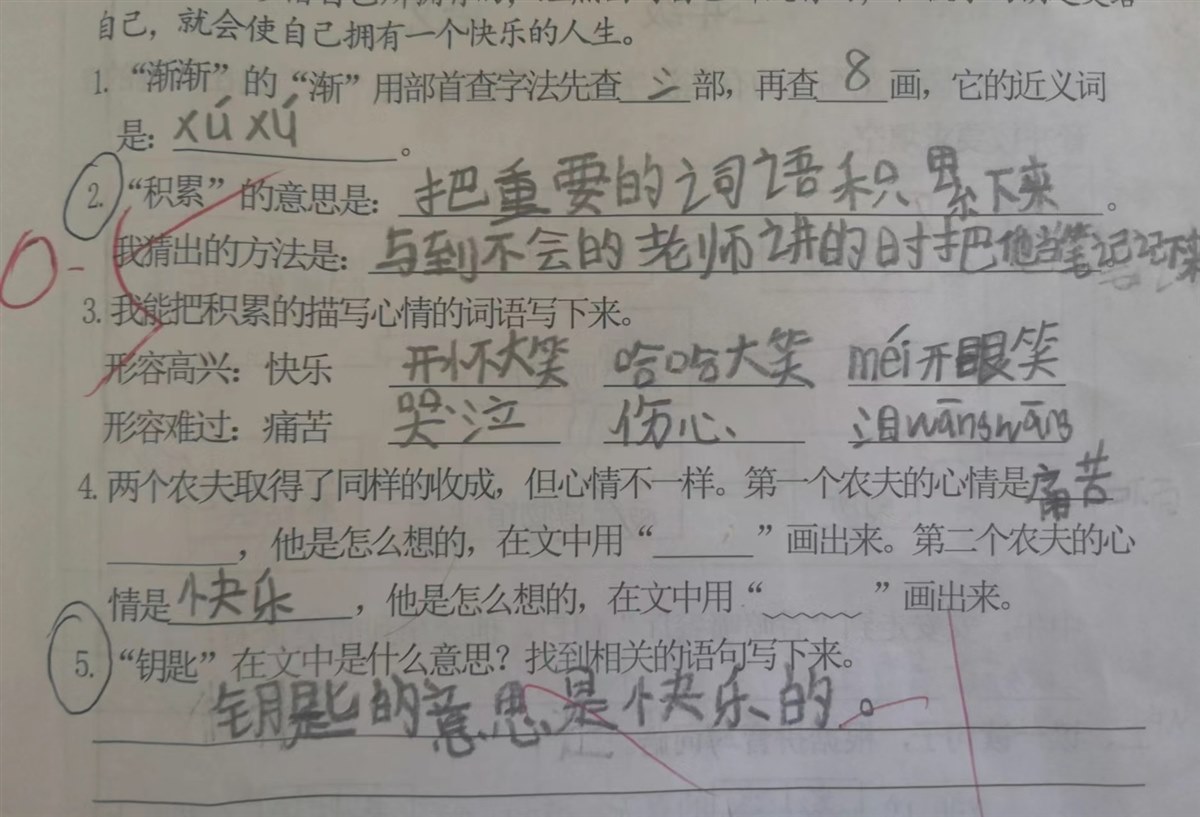 自己，就会使自己拥有一个快乐的人生。
1. “渐渐”的“渐”用部首查字法先查 氵 部，再查 8 画，它的近义词
是：xú xú 。
2. “积累”的意思是：把重要的词语积累下来。
我猜出的方法是：与到不会的老师讲的时把他当笔记记下来
3. 我能把积累的描写心情的词语写下来。
形容高兴：快乐 开怀大笑 哈哈大笑 méi开眼笑
形容难过：痛苦 哭泣 伤心 泪wāngwāng
4. 两个农夫取得了同样的收成，但心情不一样。第一个农夫的心情是痛苦
，他是怎么想的，在文中用“______”画出来。第二个农夫的心
情是快乐，他是怎么想的，在文中用“﹏﹏﹏”画出来。
5. “钥匙”在文中是什么意思？找到相关的语句写下来。
钥匙的意思是快乐的。